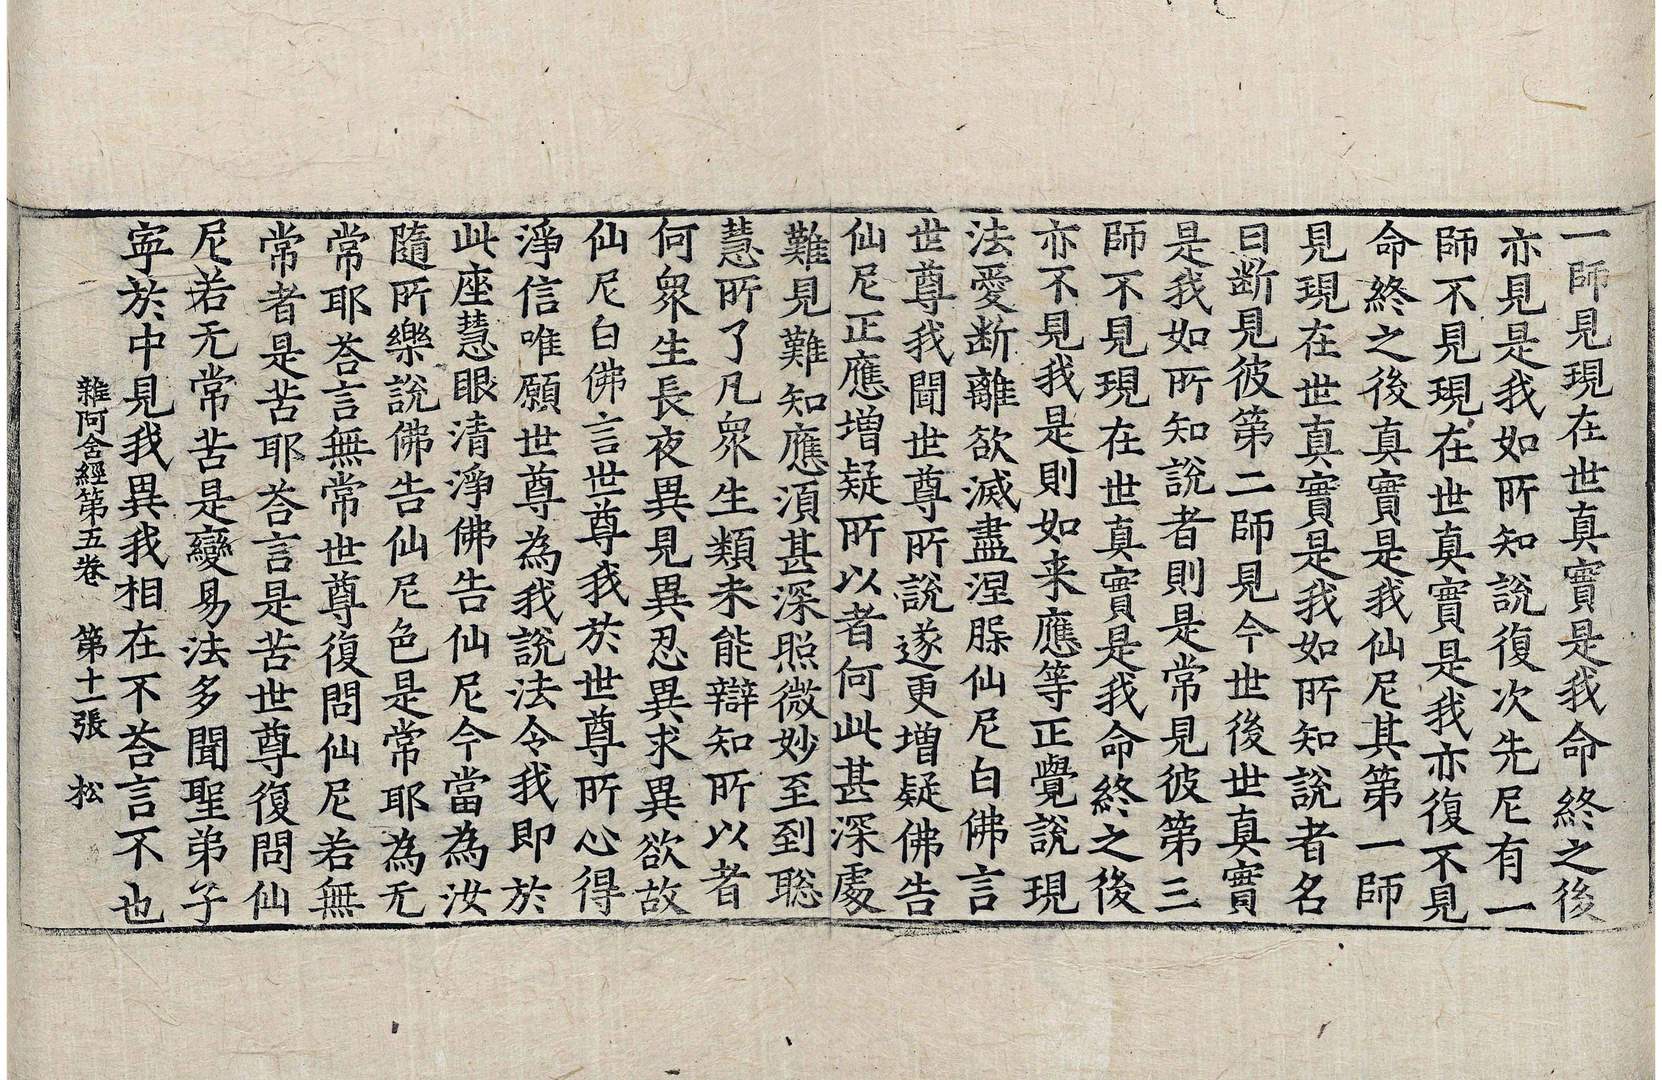 一師見現在世真實是我命終之後
亦見是我如所知說復次先尼有一
師不見現在世真實是我亦復不見
命終之後真實是我仙尼其第一師
見現在世真實是我如所知說者名
曰斷見彼第二師見今世後世真實
是我如所知說者則是常見彼第三
師不見現在世真實是我命終之後
亦不見我是則如来應等正覺說現
法愛斷離欲滅盡涅脲仙尼白佛言
世尊我聞世尊所說遂更增疑佛告
仙尼正應增疑所以者何此甚深處
難見難知應湏甚深照微妙至到聡
慧所了凡衆生類未能辯知所以者
何衆生長夜異見異忍異求異欲故
仙尼白佛言世尊我於世尊所心得
淨信唯願世尊為我說法令我即於
此座慧眼清淨佛告仙尼今當為汝
隨所樂說佛告仙尼色是常耶為无
常耶荅言無常世尊復問仙尼若無
常者是苦耶荅言是苦世尊復問仙
尼若无常苦是變易法多聞聖弟子
寜於中見我異我相在不荅言不也
雜阿含經第五卷　第十一張　松